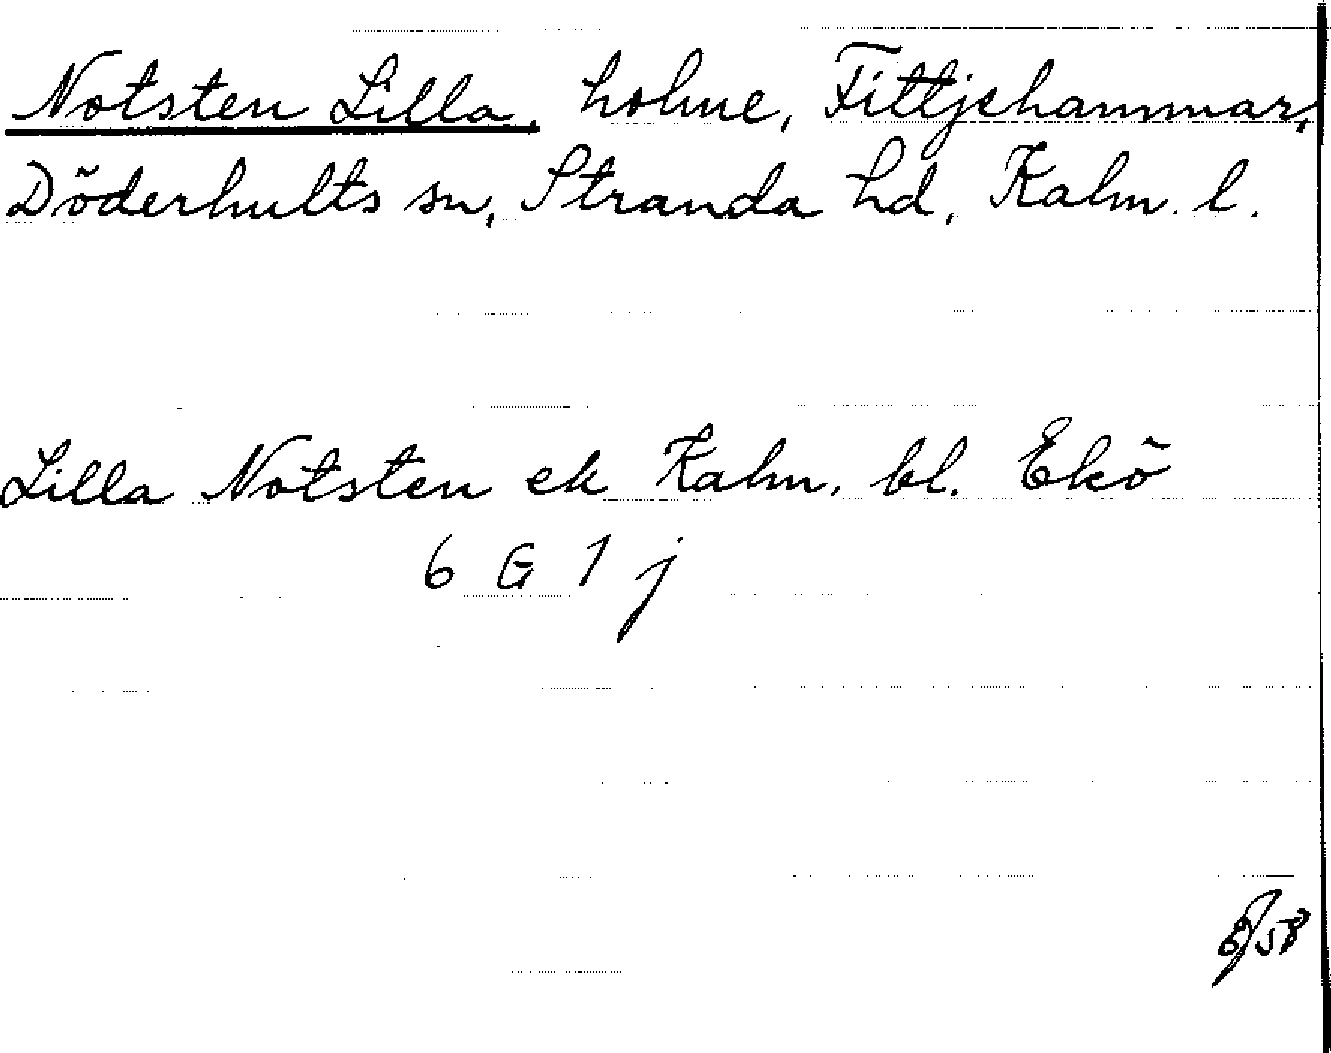 Notsten Lilla, holme, Fittjehammar,
Döderhults sn, Stranda hd, Kalm. l.
Lilla Notsten ek Kalm. bl. Ekö
6 G 1 j